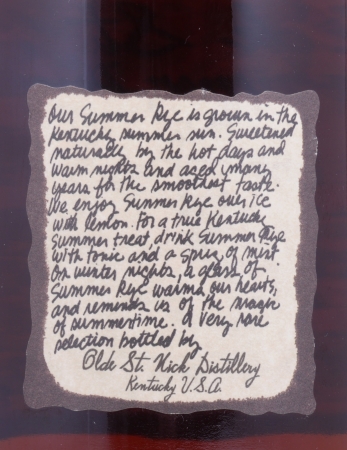 Our Summer Rye is grown in the
Kentucky summer sun. Sweetened
naturally by the hot days and
warm nights and aged many
years for the smoothest taste.
We enjoy Summer Rye over ice
with lemon. For a true Kentucky
Summer treat, drink Summer Rye
with tonic and a sprig of mint.
On winter nights, a glass of
Summer Rye warms our hearts,
and reminds us of the magic
of summertime. A very rare
selection bottled by
Olde St. Nick Distillery
Kentucky U.S.A.